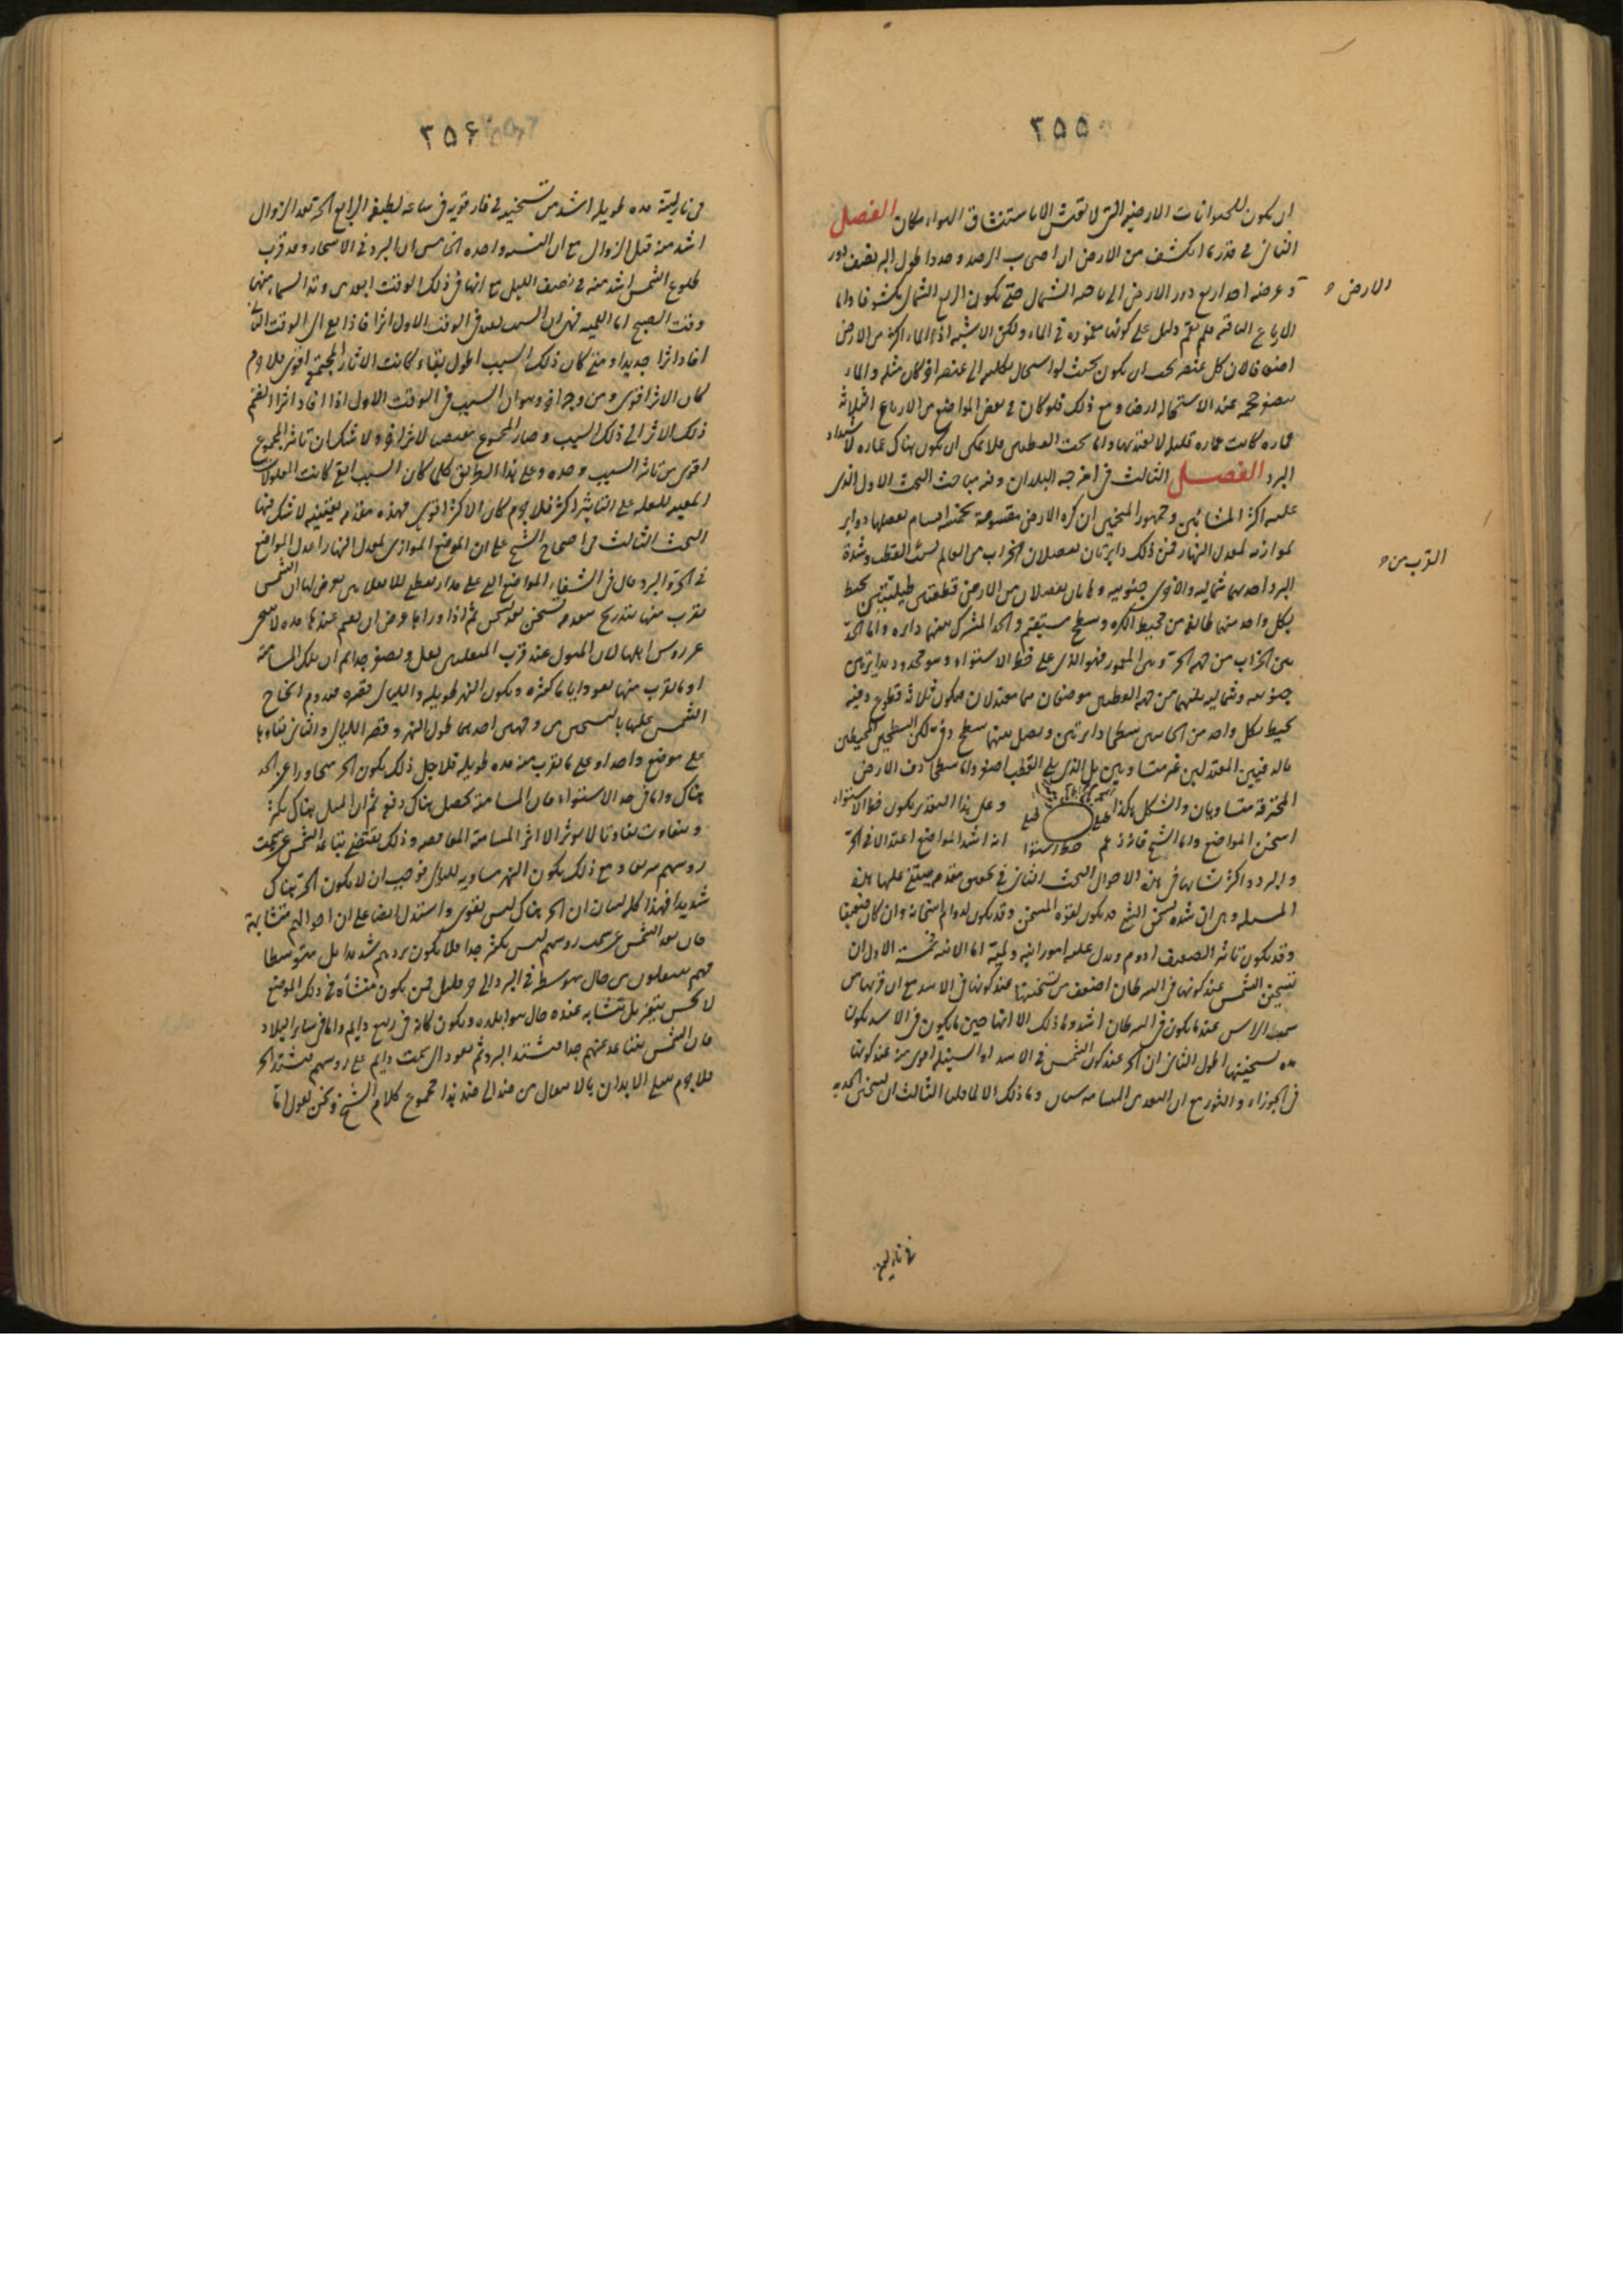 ٢٥٥
ان يكون للحيوانات الارضية التى لا تعيش الا باستنشاق الهواء مكان الفصل
الثانى فى قدر ما انكشف من الارض ان اصحاب الرصد وجدوا طول البر نصف دور
الارض
و عرضه احد ارباع دور الارض الى ناحية الشمال حتى يكون الربع الشمالى مكشوفا واما
الارباع الباقية فلم يقم دليل على كونها مغمورة فى الماء ولكن الاشبه اذ الماء اكثر من الارض
اضعافا لان كل عنصر يجب ان يكون بحيث لو استحال بكليته الى عنصر اخر كان مثله والماء
يصغر حجمه عند الاستحالة ارضا ومع ذلك فلو كان فى بعض المواضع من الارباع الثلاثة
عمارة كانت عمارة قليلة لا يعتد بها واما تحت القطبين فلا يمكن ان يكون هناك عمارة لاشتداد
البرد الفصل الثالث فى امزجة البلدان وفيه مباحث البحث الاول الذى
عليه اكثر المشائين وجمهور المنجمين ان كرة الارض مقسومة بخمسة اقسام يفصلها دواير
موازية لمعدل النهار فمن ذلك دايرتان يفصلان الخراب من العالم بسبب القرب من القطب وشدة
البرد احديهما شمالية والاخرى جنوبية وهاتان يفصلان من الارض قطعتين طبليتين يحيط
بكل واحد منهما طائفة من محيط الكرة وسطح مستقيم والحد المشترك بينهما دايرة واما الحد
بين الخراب من جهة الحر وبين المعمور فهو الذى على خط الاستواء وهو محدود بدايرتين
جنوبية وشمالية يليهما من جهة القطبين موضعان هما معتدلان فيكون ثلاثة قطوع دفية
يحيط بكل واحد من الجانبين سطحا دايرتين ويصل بينهما سطح دفى لكن السطحين المحيطين
بالدفيين المعتدلين غير متساويين بل الذى يلى القطب اصغر واما سطحا دف الارض
المحترقة متساويان والشكل هكذا وعلى هذا التقدير يكون خط الاستواء
اسخن المواضع واما الشيخ فانه زعم انه اشد المواضع اعتدالا فى الحر
والبرد واكثر تشابها فى هذه الاحوال البحث الثانى فى تحقيق مقدمة يبتنى عليها هذه
المسئلة وهى ان شدة تسخن الشئ قد يكون لقوة المسخن وقد يكون لدوام اسخانه وان كان ضعيفا
وقد يكون تاثير الضعيف ادوم ويدل عليه امور انية ولمية اما الانية فخمسة الاول ان
تسخين الشمس عند كونها فى السرطان اضعف من تسخينها عند كونها فى الاسد مع ان قربها من
سمت الراس عند ما يكون فى السرطان اشد وما ذلك الا انها حين ما يكون فى الاسد يكون
مدة تسخينها اطول الثانى ان الحر عند كون الشمس فى الاسد او السنبلة اقوى منه عند كونها
فى الجوزاء والثور مع ان البعد من المسامتة سيان وما ذلك الا لما قلنا الثالث ان تسخن الحديد
فى نار لينة
٢٥٤
فى نار لينة مدة طويلة اشد من تسخنه فى نار قوية فى ساعة لطيفة الرابع الحر بعد الزوال
اشد منه قبل الزوال مع ان النسبة واحدة الخامس ان البرد فى الاسحار وعند قرب
طلوع الشمس اشد منه فى نصف الليل مع انها فى ذلك الوقت ابعد من وتد السماء منها
وقت الصبح اما اللمية فهى ان السبب يفيد فى الوقت الاول اثرا فاذا بقى الى الوقت الثانى
افاد اثرا جديدا ومتى كان ذلك السبب اطول بقاء كانت الاثار المجتمعة اقوى فلا جرم
كان الاثر اقوى ومن وجه اخر وهو ان السبب فى الوقت الاول اذا افاد اثرا انضم
ذلك الاثر الى ذلك السبب وصار المجموع مقتضيا لاثر اخر ولا شك ان تاثير المجموع
اقوى من تاثير السبب وحده وعلى هذا الطريق كلما كان السبب ابقى كانت المعلولات
المعينة للعلة على التاثير اكثر فلا جرم كان الاكثر اقوى فهذه مقدمة يقينية لا شك فيها
البحث الثالث فى احتجاج الشيخ على ان الموضع الموازى لمعدل النهار اعدل المواضع
فى الحر والبرد قال فى الشفاء المواضع التى على مدار نقطتى الانقلابين يعرض لها ان الشمس
تقرب منها بتدريج يتقدمه تسخن بعد تسخن ثم اذا وافاها عرض ان يقيم عندها مدة لا يتنحى
عن رؤس اهلها لان الميول عند قرب المنقلبين يقل ويصغر جدا ثم ان تلك المسامتة
او ما يقرب منها يعود اياما كثيرة ويكون النهر طويلة والليالى قصيرة فيدوم الحاح
الشمس عليها بالتسخين من وجهين احدهما طول النهر وقصر الليالى والثانى بقاؤها
على موضع واحد او على ما يقرب منه مدة طويلة فلاجل ذلك يكون الحر مجاورا عن الحد
هناك واما فى خط الاستواء فان المسامتة تحصل هناك دفعة ثم ان الميل هناك يكثر
ويتفاوت تفاوتا لا يؤثر الا اثر المسامتة المغافصة وذلك يقتضى تباعد الشمس عن سمت
رؤسهم سريعا ومع ذلك يكون النهر مساوية لليالى فوجب ان لا يكون الحر هناك
شديدا فهذا كله لبيان ان الحر هناك ليس بقوى واستدل ايضا على ان احوالهم متشابهة
فان بعد الشمس عن سمت رؤسهم ليس بكثير جدا فلا يكون بردهم شديدا بل متوسطا
فهم ينتقلون من حال متوسط فى البرد الى حر قليل فمن يكون منشأه فى ذلك الموضع
لا يحس بتغير بل يتشابه عنده حال هوا بلده ويكون كانه فى ربيع دايم واما فى سائر البلاد
فان الشمس يتباعد عنهم جدا فيشتد البرد ثم يعود الى سمت دايم على رؤسهم فيشتد الحر
فلا جرم يبلى الابدان بالانتقال من ضد الى ضد هذا مجموع كلام الشيخ ونحن نقول اما